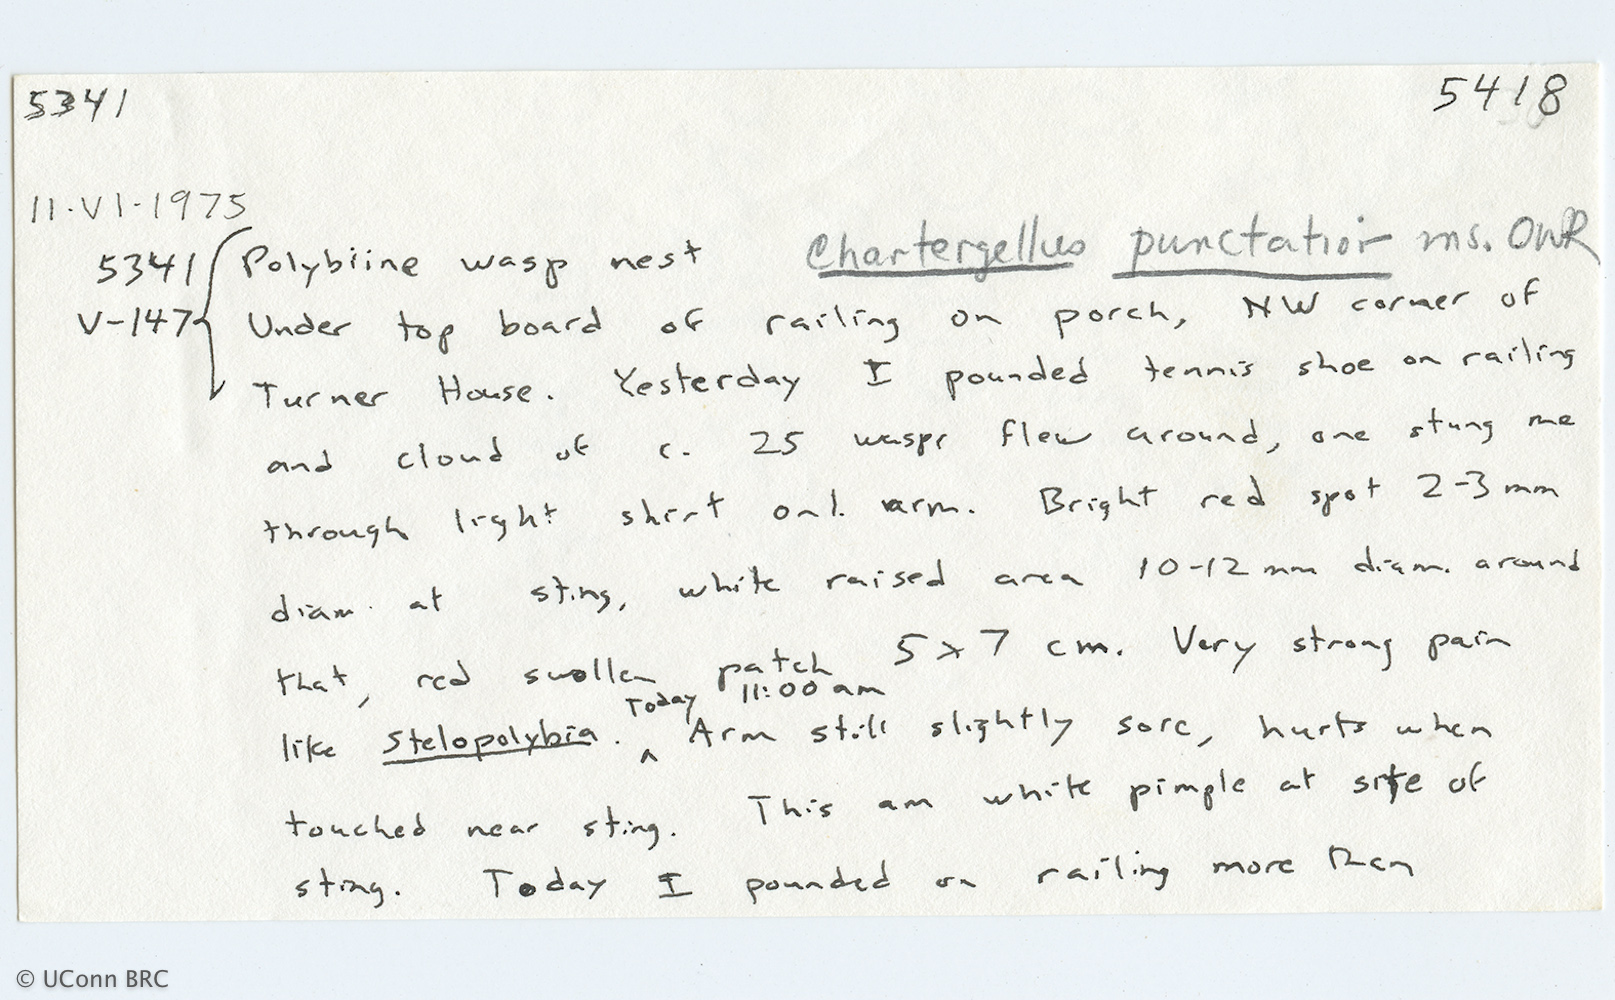 5341 5418
11·VI·1975
5341 Polybiine wasp nest Chartergellus punctatior ms. OWR
V-147 Under top board of railing on porch, NW corner of
Turner House. Yesterday I pounded tennis shoe on railing
and cloud of c. 25 wasps flew around, one stung me
through light shirt on l. arm. Bright red spot 2-3 mm
diam. at sting, white raised area 10-12 mm diam. around
that, red swollen patch 5 x 7 cm. Very strong pain
Today 11:00 am
like Stelopolybia. ^ Arm still slightly sore, hurts when
touched near sting. This am white pimple at site of
sting. Today I pounded on railing more than
© UConn BRC